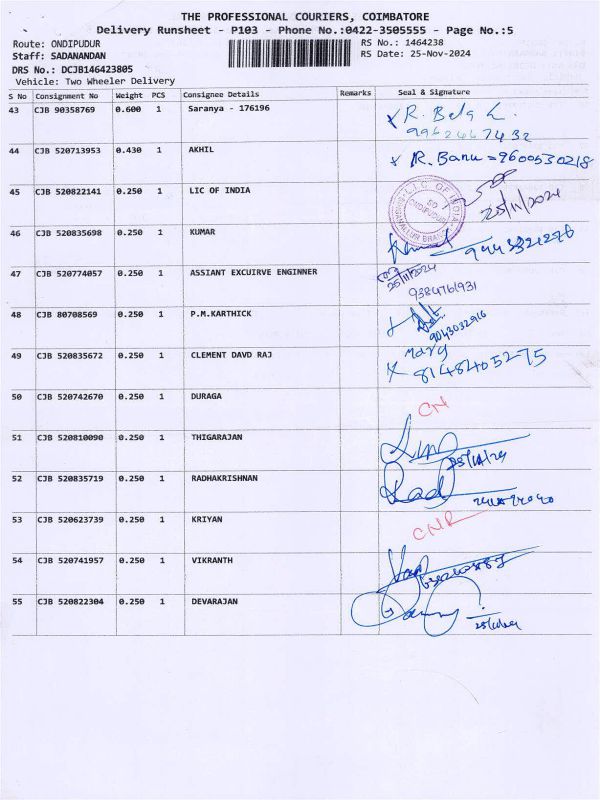 THE PROFESSIONAL COURIERS, COIMBATORE
Delivery Runsheet - P103 - Phone No.:0422-3505555 - Page No.:5
Route: ONDIPUDUR RS No.: 1464238
Staff: SADANANDAN RS Date: 25-Nov-2024
DRS No.: DCJB146423805
Vehicle: Two Wheeler Delivery
S No Consignment No Weight PCS Consignee Details Remarks Seal & Signature
43 CJB 90358769 0.600 1 Saranya - 176196 R. Bela
9962467432
44 CJB 520713953 0.430 1 AKHIL R. Banu = 9600530218
45 CJB 520822141 0.250 1 LIC OF INDIA L.I.C. OF INDIA SO ONDIPUDUR 25/11/2024
46 CJB 520835698 0.250 1 KUMAR
47 CJB 520774057 0.250 1 ASSIANT EXCUIRVE ENGINNER 25/11/2024
9384761931
48 CJB 80708569 0.250 1 P.M.KARTHICK
9043032916
49 CJB 520835672 0.250 1 CLEMENT DAVD RAJ Mary
8148405275
50 CJB 520742670 0.250 1 DURAGA CN
51 CJB 520810090 0.250 1 THIGARAJAN 25/11/24
52 CJB 520835719 0.250 1 RADHAKRISHNAN Rad
53 CJB 520623739 0.250 1 KRIYAN CNR
54 CJB 520741957 0.250 1 VIKRANTH
55 CJB 520822304 0.250 1 DEVARAJAN